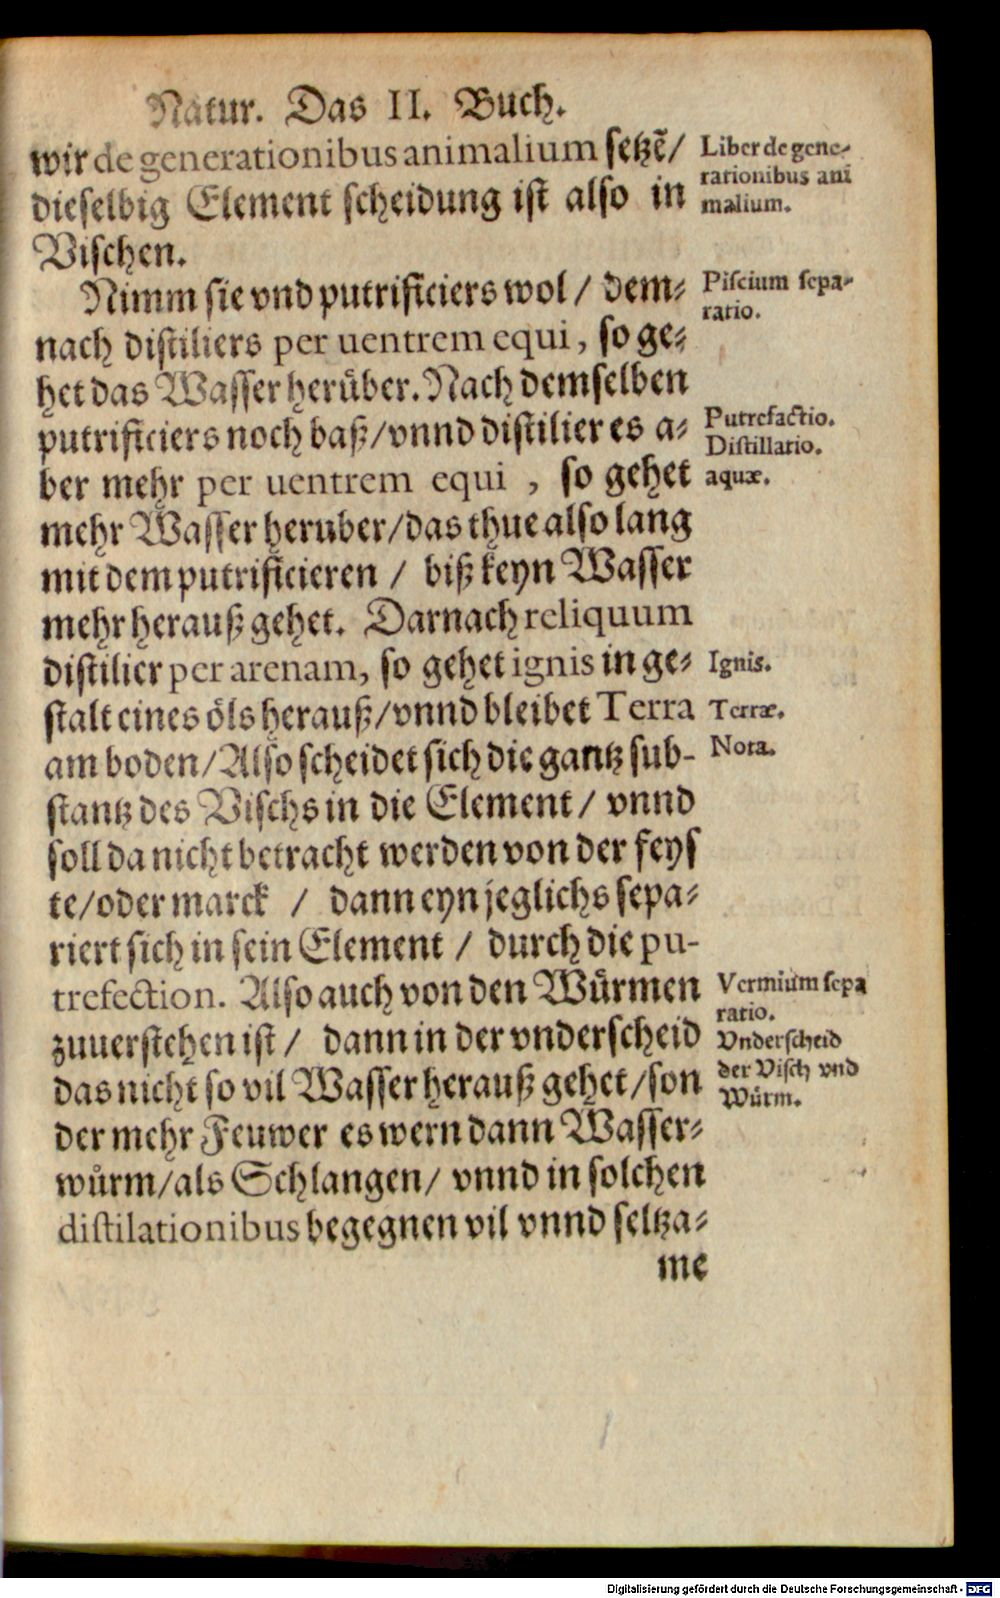 Natur. Das II. Buch.
wir de generationibus animalium setzẽ/
dieselbig Element scheidung ist also in
Vischen.
Nimm sie vnd putrificiers wol / dem⸗
nach distiliers per uentrem equi, so ge⸗
het das Wasser herüber. Nach demselben
putrificiers noch baß/vnnd distilier es a⸗
ber mehr per uentrem equi , so gehet
mehr Wasser heruber/das thue also lang
mit dem putrificieren / biß keyn Wasser
mehr herauß gehet. Darnach reliquum
distilier per arenam, so gehet ignis in ge⸗
stalt eines öls herauß/vnnd bleibet Terra
am boden/Also scheidet sich die gantz sub-
stantz des Vischs in die Element/ vnnd
soll da nicht betracht werden von der feys
te/oder marck / dann eyn jeglichs sepa⸗
riert sich in sein Element / durch die pu-
trefection. Also auch von den Würmen
zuuerstehen ist / dann in der vnderscheid
das nicht so vil Wasser herauß gehet/son
der mehr Feuwer es wern dann Wasser⸗
würm/als Schlangen/ vnnd in solchen
distilationibus begegnen vil vnnd seltza⸗
me
Liber de gene-
rationibus ani
malium.
Piscium sepa-
ratio.
Putrefactio.
Distillatio.
aquæ.
Ignis.
Terræ.
Nota.
Vermium sepa
ratio.
Vnderscheid
der Visch vnd
Würm.
Digitalisierung gefördert durch die Deutsche Forschungsgemeinschaft - DFG